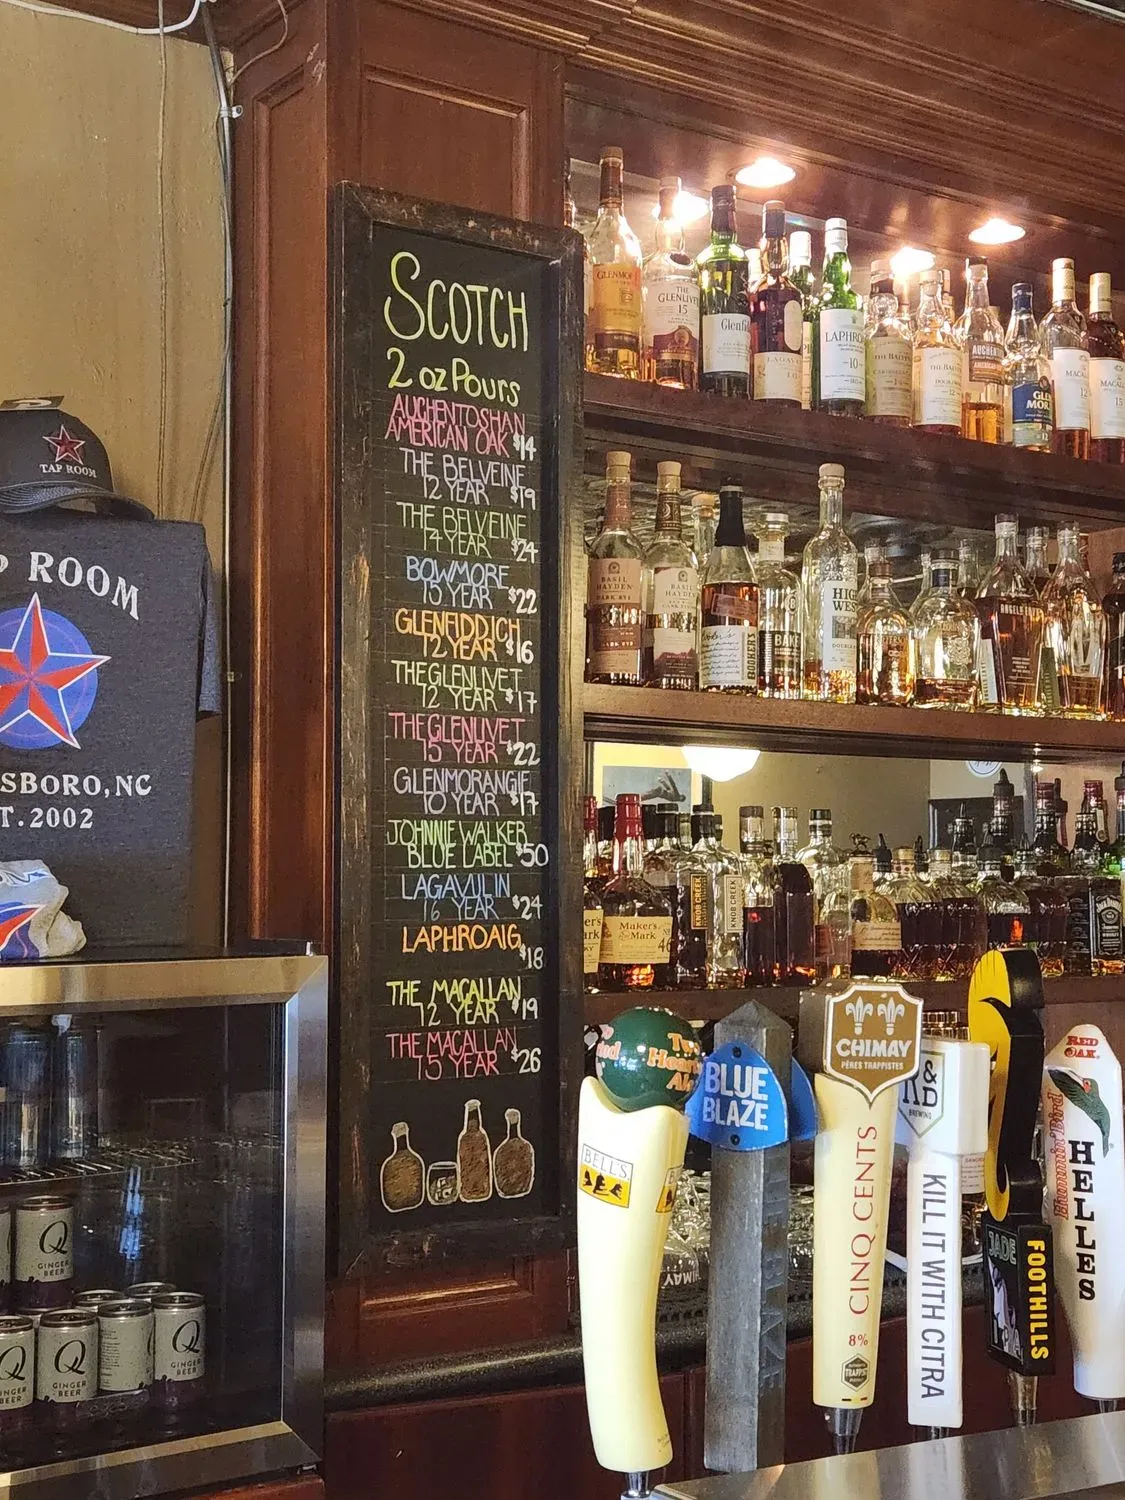 SCOTCH
2 oz Pours
AUCHENTOSHAN
AMERICAN OAK $14
THE BELVEINE
12 YEAR $19
THE BELVEINE
14 YEAR $24
BOWMORE
15 YEAR $22
GLENFIDDICH
12 YEAR $16
THE GLENLIVET
12 YEAR $17
THE GLENLIVET
15 YEAR $22
GLENMORANGIE
10 YEAR $17
JOHNNIE WALKER
BLUE LABEL $50
LAGAVULIN
16 YEAR $24
LAPHROAIG
$18
THE MACALLAN
12 YEAR $19
THE MACALLAN
15 YEAR $26
TAP ROOM
ROOM
SBORO, NC
T. 2002
Q
GINGER
BEER
Q
GINGER
BEER
Q
GINGER
BEER
THE
GLENLIVET
15
LAPHR
10
HIGH
WES
BASIL
HAYDEN
BASIL
HAYDEN
BOOKER'S
Maker's
Mark
46
KNOB CREEK
KNOB CREEK
Two
Hearted
Ale
BELL'S
BLUE
BLAZE
CHIMAY
PÈRES TRAPPISTES
CINQ CENTS
8%
BREWING
KILL IT WITH CITRA
JADE
FOOTHILLS
RED
OAK
Humming Bird
HELLES